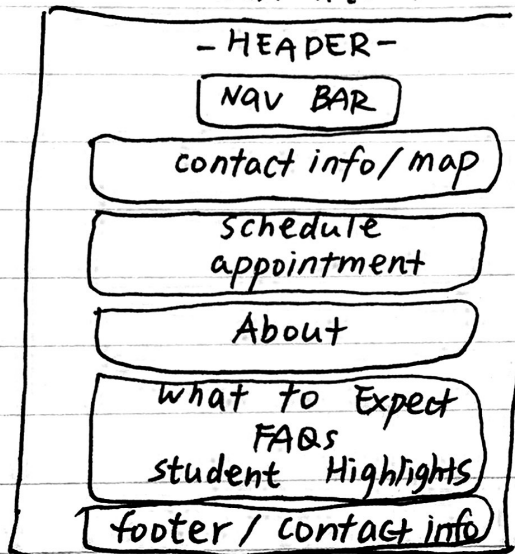 - HEADER -
Nav BAR
contact info/map
schedule
appointment
About
what to Expect
FAQs
student Highlights
footer / contact info